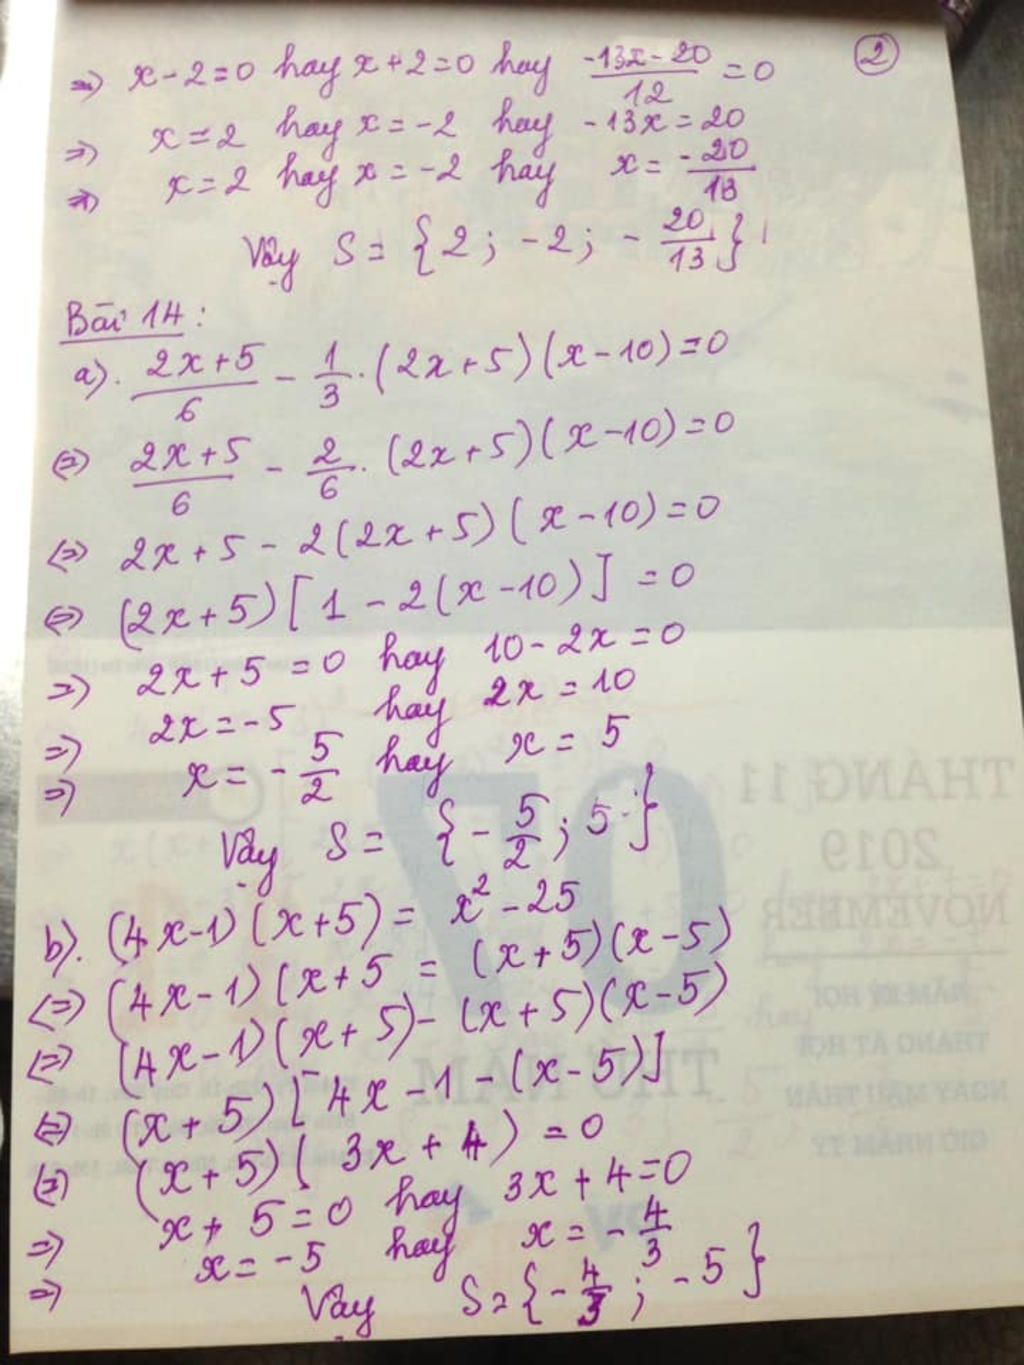 ②
=> x - 2 = 0 hay x + 2 = 0 hay \frac{-13x - 20}{12} = 0
=> x = 2 hay x = -2 hay -13x = 20
=> x = 2 hay x = -2 hay x = \frac{-20}{13}
Vậy S = {2; -2; -\frac{20}{13}}
Bài 14:
a). \frac{2x+5}{6} - \frac{1}{3}.(2x+5)(x-10)=0
<=> \frac{2x+5}{6} - \frac{2}{6}.(2x+5)(x-10)=0
<=> 2x+5 - 2(2x+5)(x-10)=0
<=> (2x+5)[1 - 2(x-10)] = 0
=> 2x+5 = 0 hay 10 - 2x = 0
=> 2x = -5 hay 2x = 10
=> x = -\frac{5}{2} hay x = 5
Vậy S = {-\frac{5}{2}; 5}
b). (4x-1)(x+5) = x² - 25
<=> (4x-1)(x+5 = (x+5)(x-5)
<=> (4x-1)(x+5) - (x+5)(x-5)
<=> (x+5)[4x - 1 - (x-5)]
<=> (x+5)(3x+4) = 0
=> x + 5 = 0 hay 3x + 4 = 0
=> x = -5 hay x = -\frac{4}{3}
Vậy S = {-\frac{4}{3}; -5}
THÁNG 11
2019
NOVEMBER
07
THỨ NĂM
NĂM KỶ HỢI
THÁNG ẤT HỢI
NGÀY MẬU THÂN
GIỜ NHÂM TÝ